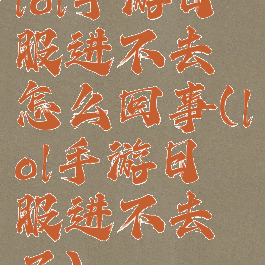 lol手游日
服进不去
怎么回事(l
ol手游日
服进不去
了)